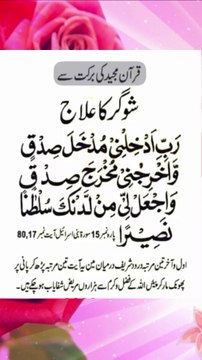 قرآن مجید کی برکت سے
شوگر کا علاج
رَبِّ اَدْخِلْنِیْ مُدْخَلَ صِدْقٍ
وَّاَخْرِجْنِیْ مُخْرَجَ صِدْقٍ
وَّاجْعَلْ لِّیْ مِنْ لَّدُنْكَ سُلْطٰنًا
نَّصِیْرًا پارہ نمبر 15 سورۃ بنی اسرائیل آیت نمبر 80,17
اول و آخر تین مرتبہ درود شریف درمیان میں یہ آیت تین مرتبہ پڑھ کر پانی پر
پھونک مار کر پیئں اللہ کے فضل و کرم سے ہزاروں مریض شفایاب ہو چکے ہیں۔